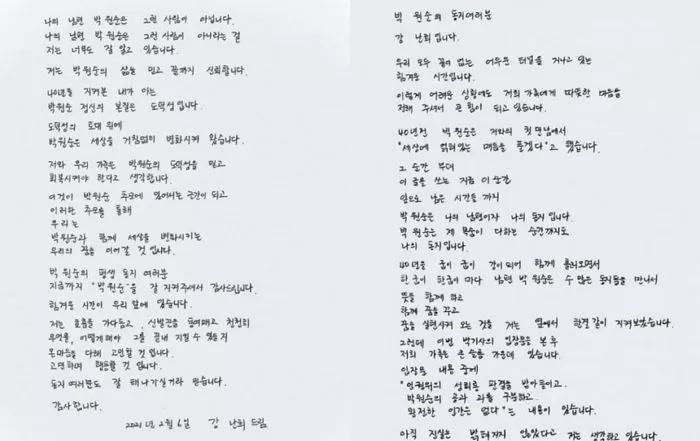 나의 남편 박원순은 그런 사람이 아닙니다.
나의 남편 박원순은 그런 사람이 아니라는 걸
저는 너무도 잘 알고 있습니다.
저는 박원순의 삶을 믿고 끝까지 신뢰합니다.
40년을 지켜본 내가 아는
박원순 정신의 본질은 도덕성입니다.
도덕성의 토대 위에
박원순은 세상을 거침없이 변화시켜 왔습니다.
저와 우리 가족은 박원순의 도덕성을 믿고
회복시켜야 한다고 생각합니다.
이것이 박원순 추모에 있어서는 근간이 되고
이러한 추모를 통해
우리는
박원순과 함께 세상을 변화시키는
우리의 꿈을 이어갈 것입니다.
박원순의 평생 동지 여러분
지금까지 "박원순"을 잘 지켜주셔서 감사드립니다.
힘겨운 시간이 우리 앞에 있습니다.
저는 호흡을 가다듬고, 신발끈을 동여매고 천천히
무엇을, 어떻게 해야 그를 끝내 지킬 수 있을지
온 마음을 다해 고민할 것입니다.
고민하며 행동할 것입니다.
동지 여러분도 잘 해 나가실거라 믿습니다.
감사합니다.
2021년 2월 6일 강 난희 드림
박 원순의 동지여러분
강 난희입니다.
우리 모두 끝이 없는 어두운 터널을 지나고 있는
힘겨운 시간입니다.
이렇게 어려운 상황에도 저희 가족에게 따뜻한 마음을
전해 주셔서 큰 힘이 되고 있습니다.
40년전 박원순은 저와의 첫 만남에서
"세상에 얽혀있는 매듭을 풀겠다"고 했습니다.
그 순간부터
이 글을 쓰는 지금 이 순간
앞으로 남은 시간들까지
박원순은 나의 남편이자 나의 동지입니다.
박원순은 제 목숨이 다하는 순간까지도
나의 동지입니다.
40년을 굽이 굽이 강이 되어 함께 흘러오면서
한 굽이 한굽이 마다 남편 박원순은 수 많은 동지들을 만나서
뜻을 함께 하고
함께 꿈을 꾸고
꿈을 실현시켜 오는 것을 저는 옆에서 한결같이 지켜보았습니다.
그런데 이번 박기사의 입장문을 본 후
저희 가족은 큰 슬픔 가운데 있습니다.
입장문 내용 중에
"인권위의 성희롱 판결을 받아들이고.
박원순의 공과 과를 구분하고.
완전한 인간은 없다"는 내용이 있습니다.
아직 진실은 밝혀지지 않았다고 저는 생각하고 있습니다.